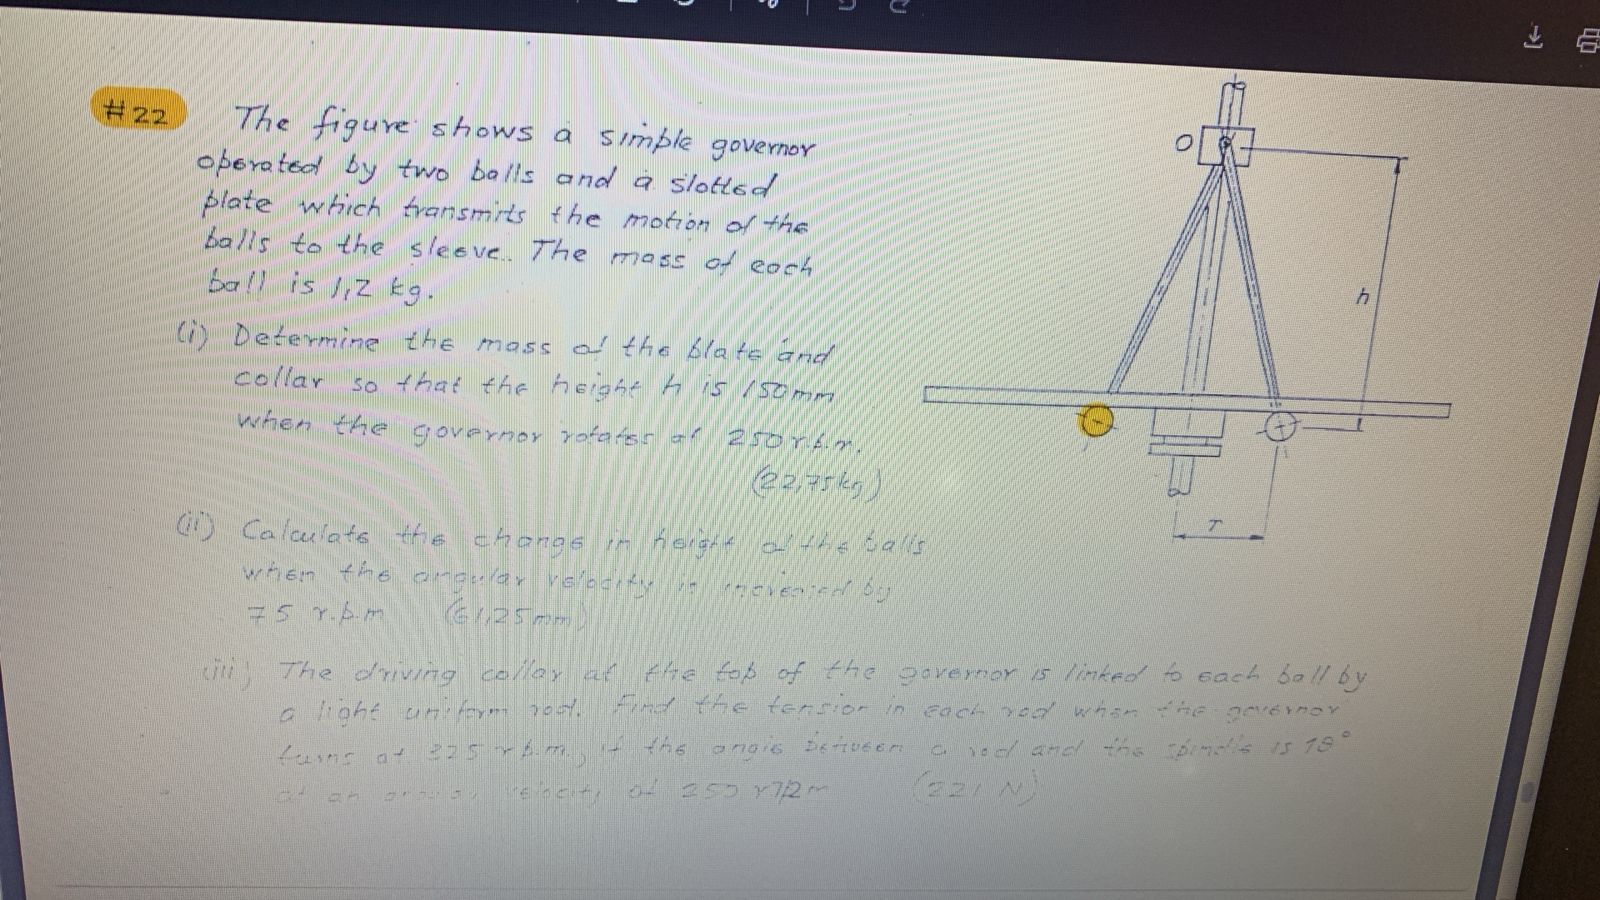 #22 The figure shows a simple governor
operated by two balls and a slotted
plate which transmits the motion of the
balls to the sleeve. The mass of each
ball is 1,2 kg.
(i) Determine the mass of the plate and
collar so that the height h is 150mm
when the governor rotates at 250 r.p.m.
(22,75kg)
(ii) Calculate the change in height of the balls
when the angular velocity is increased by
75 r.p.m (61,25mm)
(iii) The driving collar at the top of the governor is linked to each ball by
a light uniform rod. Find the tension in each rod when the governor
turns at 325 r.p.m., if the angle between a rod and the spindle is
at an velocity of 250 (221 N)
O
h
r